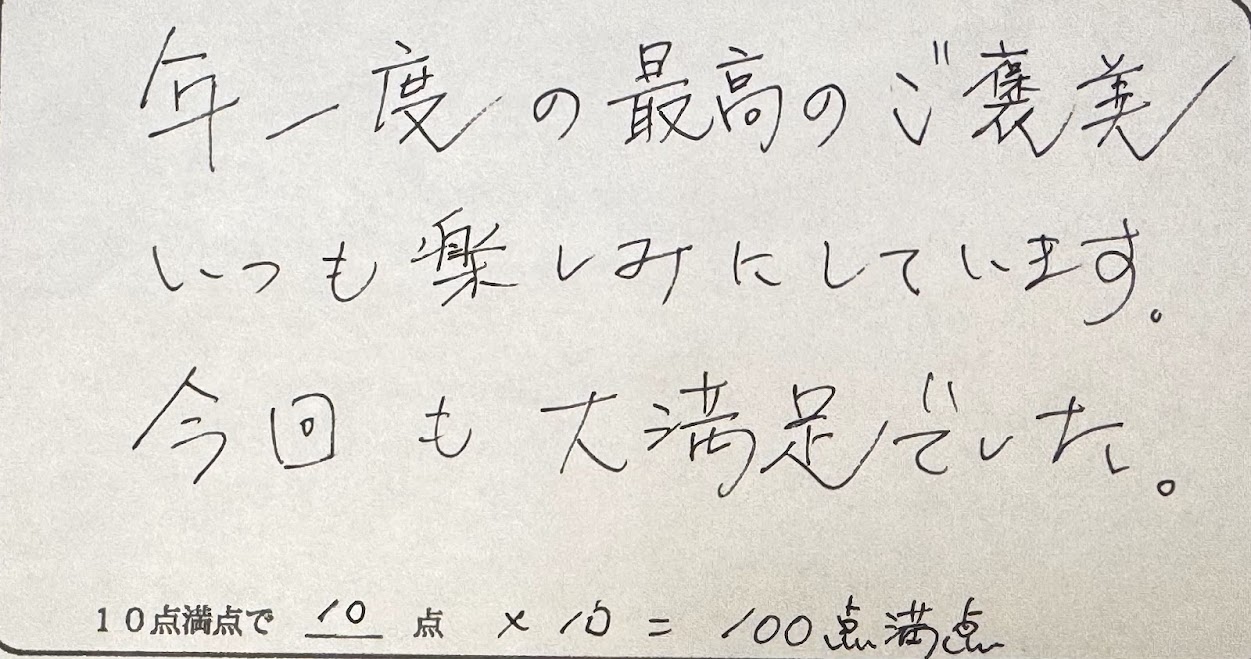 年一度の最高のご褒美
いつも楽しみにしています。
今回も大満足でした。
10点満点で 10 点 × 10 = 100点満点